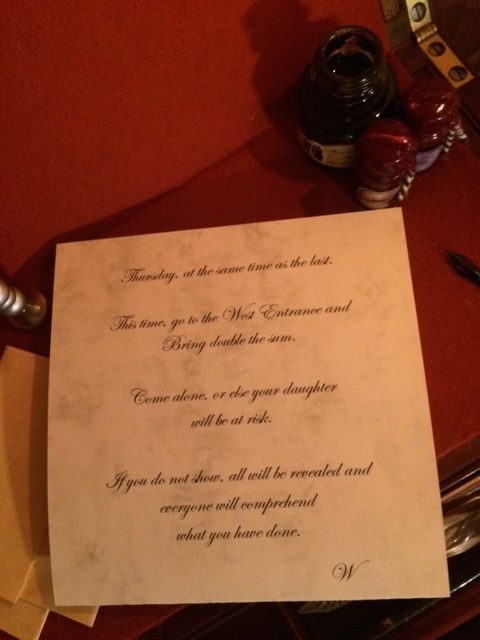 Thursday, at the same time as the last.
This time, go to the West Entrance and
Bring double the sum.
Come alone, or else your daughter
will be at risk.
If you do not show, all will be revealed and
everyone will comprehend
what you have done.
W